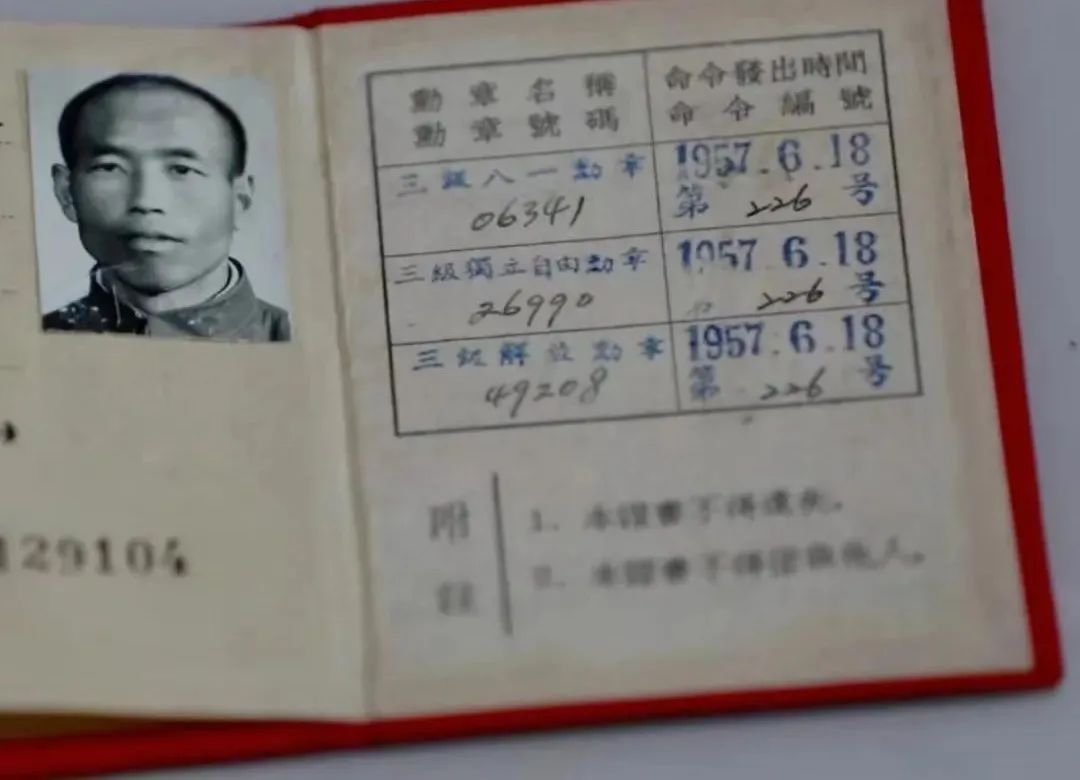 129104
勳章名稱
勳章號碼
命令發出時間
命令編號
三級八一勳章
06341
1957.6.18
第 226 号
三級獨立自由勳章
26990
1957.6.18
226 号
三級解放勳章
49208
1957.6.18
第 226 号
附註
1. 本證書不得遺失。
2. 本證書不得借與他人。